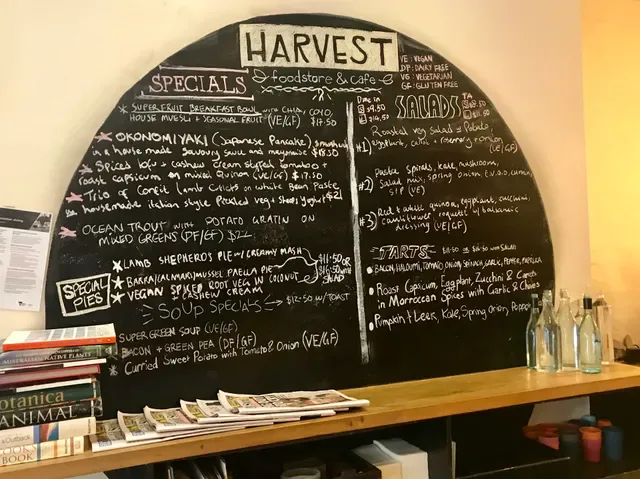 HARVEST
foodstore & cafe
VE: VEGAN
DF: DAIRY FREE
VG: VEGETARIAN
GF: GLUTEN FREE
SPECIALS
* SUPERFRUIT BREAKFAST BOWL with CHIA, COYO,
HOUSE MUESLI + SEASONAL FRUIT (VE/GF) $17.50
* OKONOMIYAKI (Japanese Pancake)
in a house made savoury sauce and mayonaise $18.50
* Spiced tofu + cashew cream stuffed tomatoes +
roast capsicum on mixed Quinoa (VE/GF) $17.50
* Trio of Confit Lamb Cutlets on White Bean Paste
housemade italian style Pickled veg + yoghurt $21
* OCEAN TROUT with POTATO GRATIN ON
MIXED GREENS (DF/GF) $22
SPECIAL
PIES
* LAMB SHEPHERDS PIE w/ CREAMY MASH
* BARRA/CALAMARI/MUSSEL PAELLA PIE
* VEGAN SPICED ROOT VEG IN COCONUT
+ CASHEW CREAM
$11.50 OR
$16.50 w/
SALAD
SOUP SPECIALS → $12.50 w/TOAST
SUPER GREEN SOUP (VE/GF)
BACON + GREEN PEA (DF/GF)
* Curried Sweet Potato with Tomato & Onion (VE/GF)
Dine in
SALADS
TA
#1) Roasted veg salad = Potato,
eggplant, + rosemary + onion
(VE/GF)
#2) Pasta spirals, kale, mushrooms,
Salad mix, spring onion, E.V.O.O,
(VE)
#3) Red & white quinoa, eggplant, zucchini,
cauliflower, rocket w/ balsamic
dressing (VE/GF)
TARTS
BACON, HALOUMI, TOMATO, ONION, SPINACH, GARLIC, PEPPER, PAPRIKA
• Roast Capsicum, Eggplant, Zucchini & Carrots
in Moroccan Spices with Garlic & Chives
• Pumpkin + Leek, Kale, Spring Onion, Pepper
AUSTRALIAN NATIVE PLANTS
Botanica
ANIMAL
Outback
COOKS BOOK